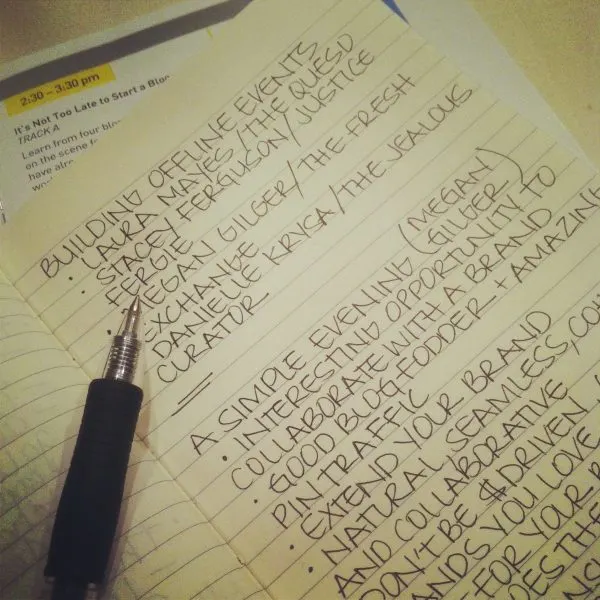 2:30 – 3:30 pm
It's Not Too Late to Start a Blog
TRACK A
Learn from four
on the scene
have
BUILDING OFFLINE EVENTS
• LAURA MAYES/THE QUESD
STACEY FERGUSON/JUSTICE
FERGIE
• MEGAN GILGER/THE FRESH
EXCHANGE
DANIELLE KRYSA/THE JEALOUS
CURATOR
A SIMPLE EVENING (MEGAN GILGER)
• INTERESTING OPPORTUNITY TO
COLLABORATE WITH A BRAND
• GOOD BLOG FODDER + AMAZING
PIN TRAFFIC
• EXTEND YOUR BRAND
NATURAL, SEAMLESS,
AND COLLABORATIVE
• DON'T BE $ DRIVEN
YOU LOVE
FOR YOUR